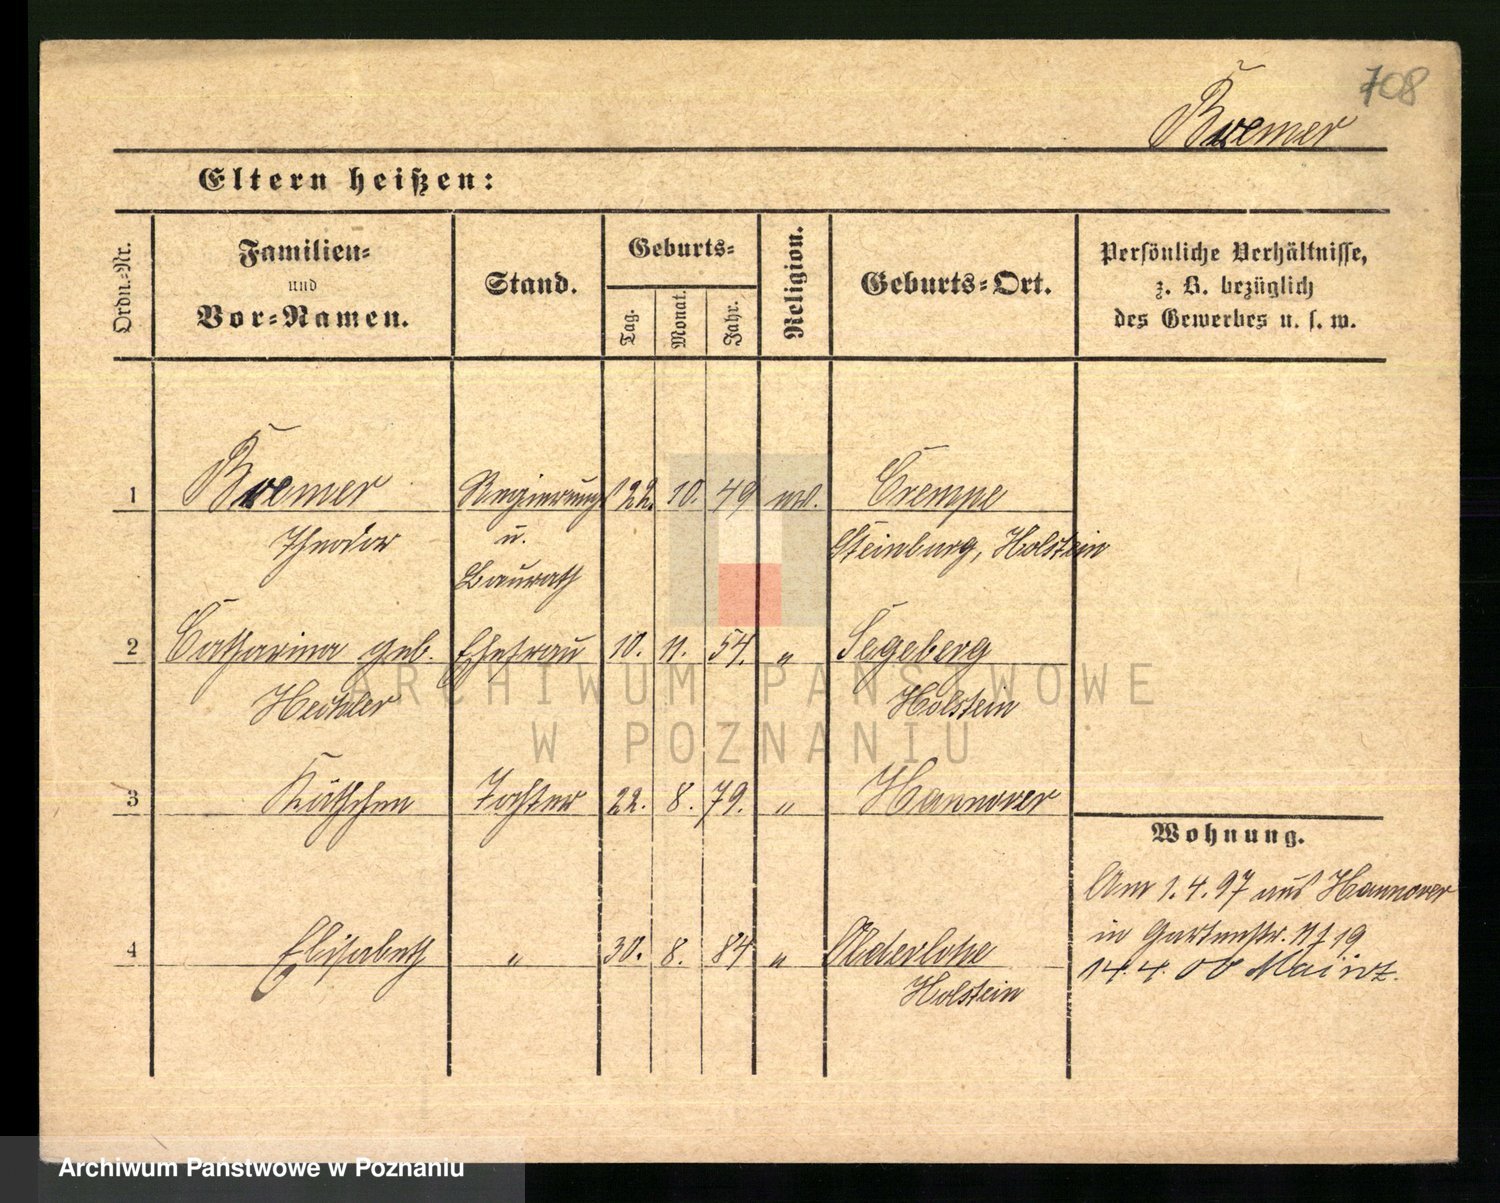 708
Bremer
Eltern heißen:
Ordn.-Nr.
Familien-
und
Vor-Namen.
Stand.
Geburts-
Tag.
Monat.
Jahr.
Religion.
Geburts-Ort.
Persönliche Verhältnisse,
z. B. bezüglich
des Gewerbes u. s. w.
1 Bremer Regierungs 22. 10. 49 ev. Crempe
Theodor u. Steinburg, Holstein
Baurath
2 Catharina geb. Ehefrau 10. 11. 54. " Segeberg
Holstein
3 Käthchen Tochter 22. 8. 79. " Hannover
Wohnung.
Am 1.4.97 aus Hannover
in Gartenstr. 19
4 Elisabeth " 30. 8. 84 "
14.4.00 Mainz.
Holstein
ARCHIWUM PAŃSTWOWE
W POZNANIU
Archiwum Państwowe w Poznaniu